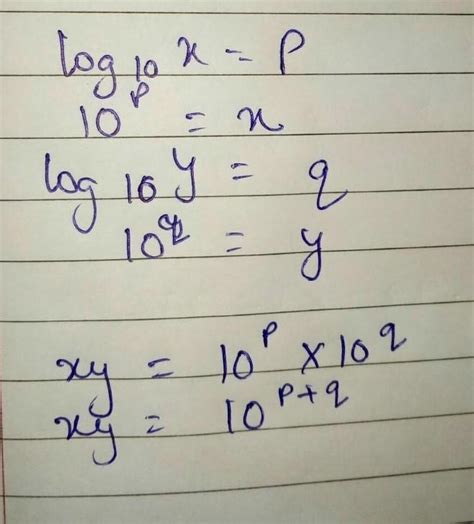 log₁₀ x = p
10ᵖ = x
log 10 y = q
10^q = y
xy = 10ᵖ × 10^q
xy = 10^(p+q)